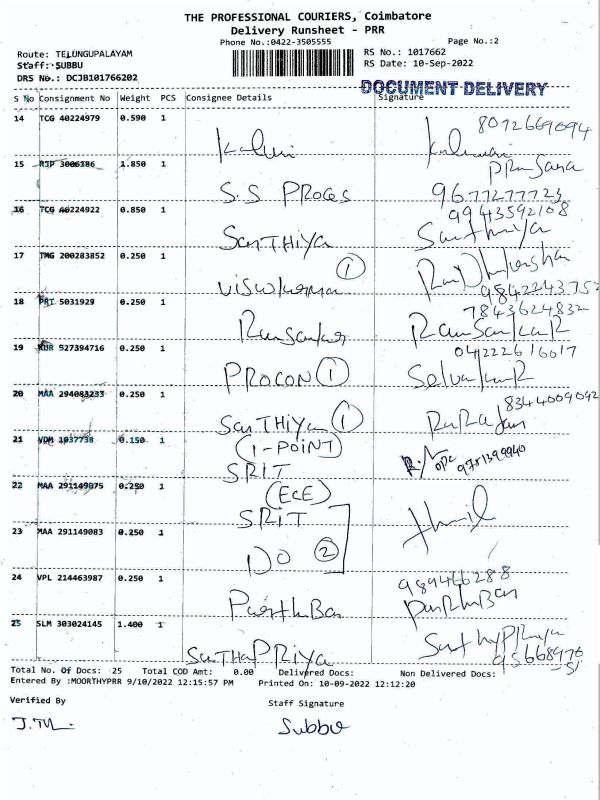 THE PROFESSIONAL COURIERS, Coimbatore
Delivery Runsheet - PRR
Phone No.:0422-3505555 Page No.:2
Route: TELUNGUPALAYAM RS No.: 1017662
Staff: SUBBU RS Date: 10-Sep-2022
DRS No.: DCJB101766202
DOCUMENT DELIVERY
S No Consignment No Weight PCS Consignee Details Signature
14 TCG 40224979 0.590 1
8072669094
15 RJP 3006786 1.850 1
S.S PROCES
9677277723
16 TCG 40224922 0.850 1
9943592108
SanTHIYA Santhiya
17 TMG 200283852 0.250 1
①
18 PRT 5031929 0.250 1
7843624832
Ramsankar RamSankaR
19 KUR 527394716 0.250 1
PROCON ① SelvakumaR
20 MAA 294083233 0.250 1
8344009092
SanTHiYa ①
21 VDM 1037738 0.150 1
(1-POINT)
SRIT
22 MAA 291149075 0.250 1
(ECE)
SRIT
23 MAA 291149083 0.250 1
DO ②
24 VPL 214463987 0.250 1
989466288
25 SLM 303024145 1.400 1
SuTHAPRiYA
Total No. Of Docs: 25 Total COD Amt: 0.00 Delivered Docs: Non Delivered Docs:
Entered By :MOORTHYPRR 9/10/2022 12:15:57 PM Printed On: 10-09-2022 12:12:20
Verified By Staff Signature
Subbu